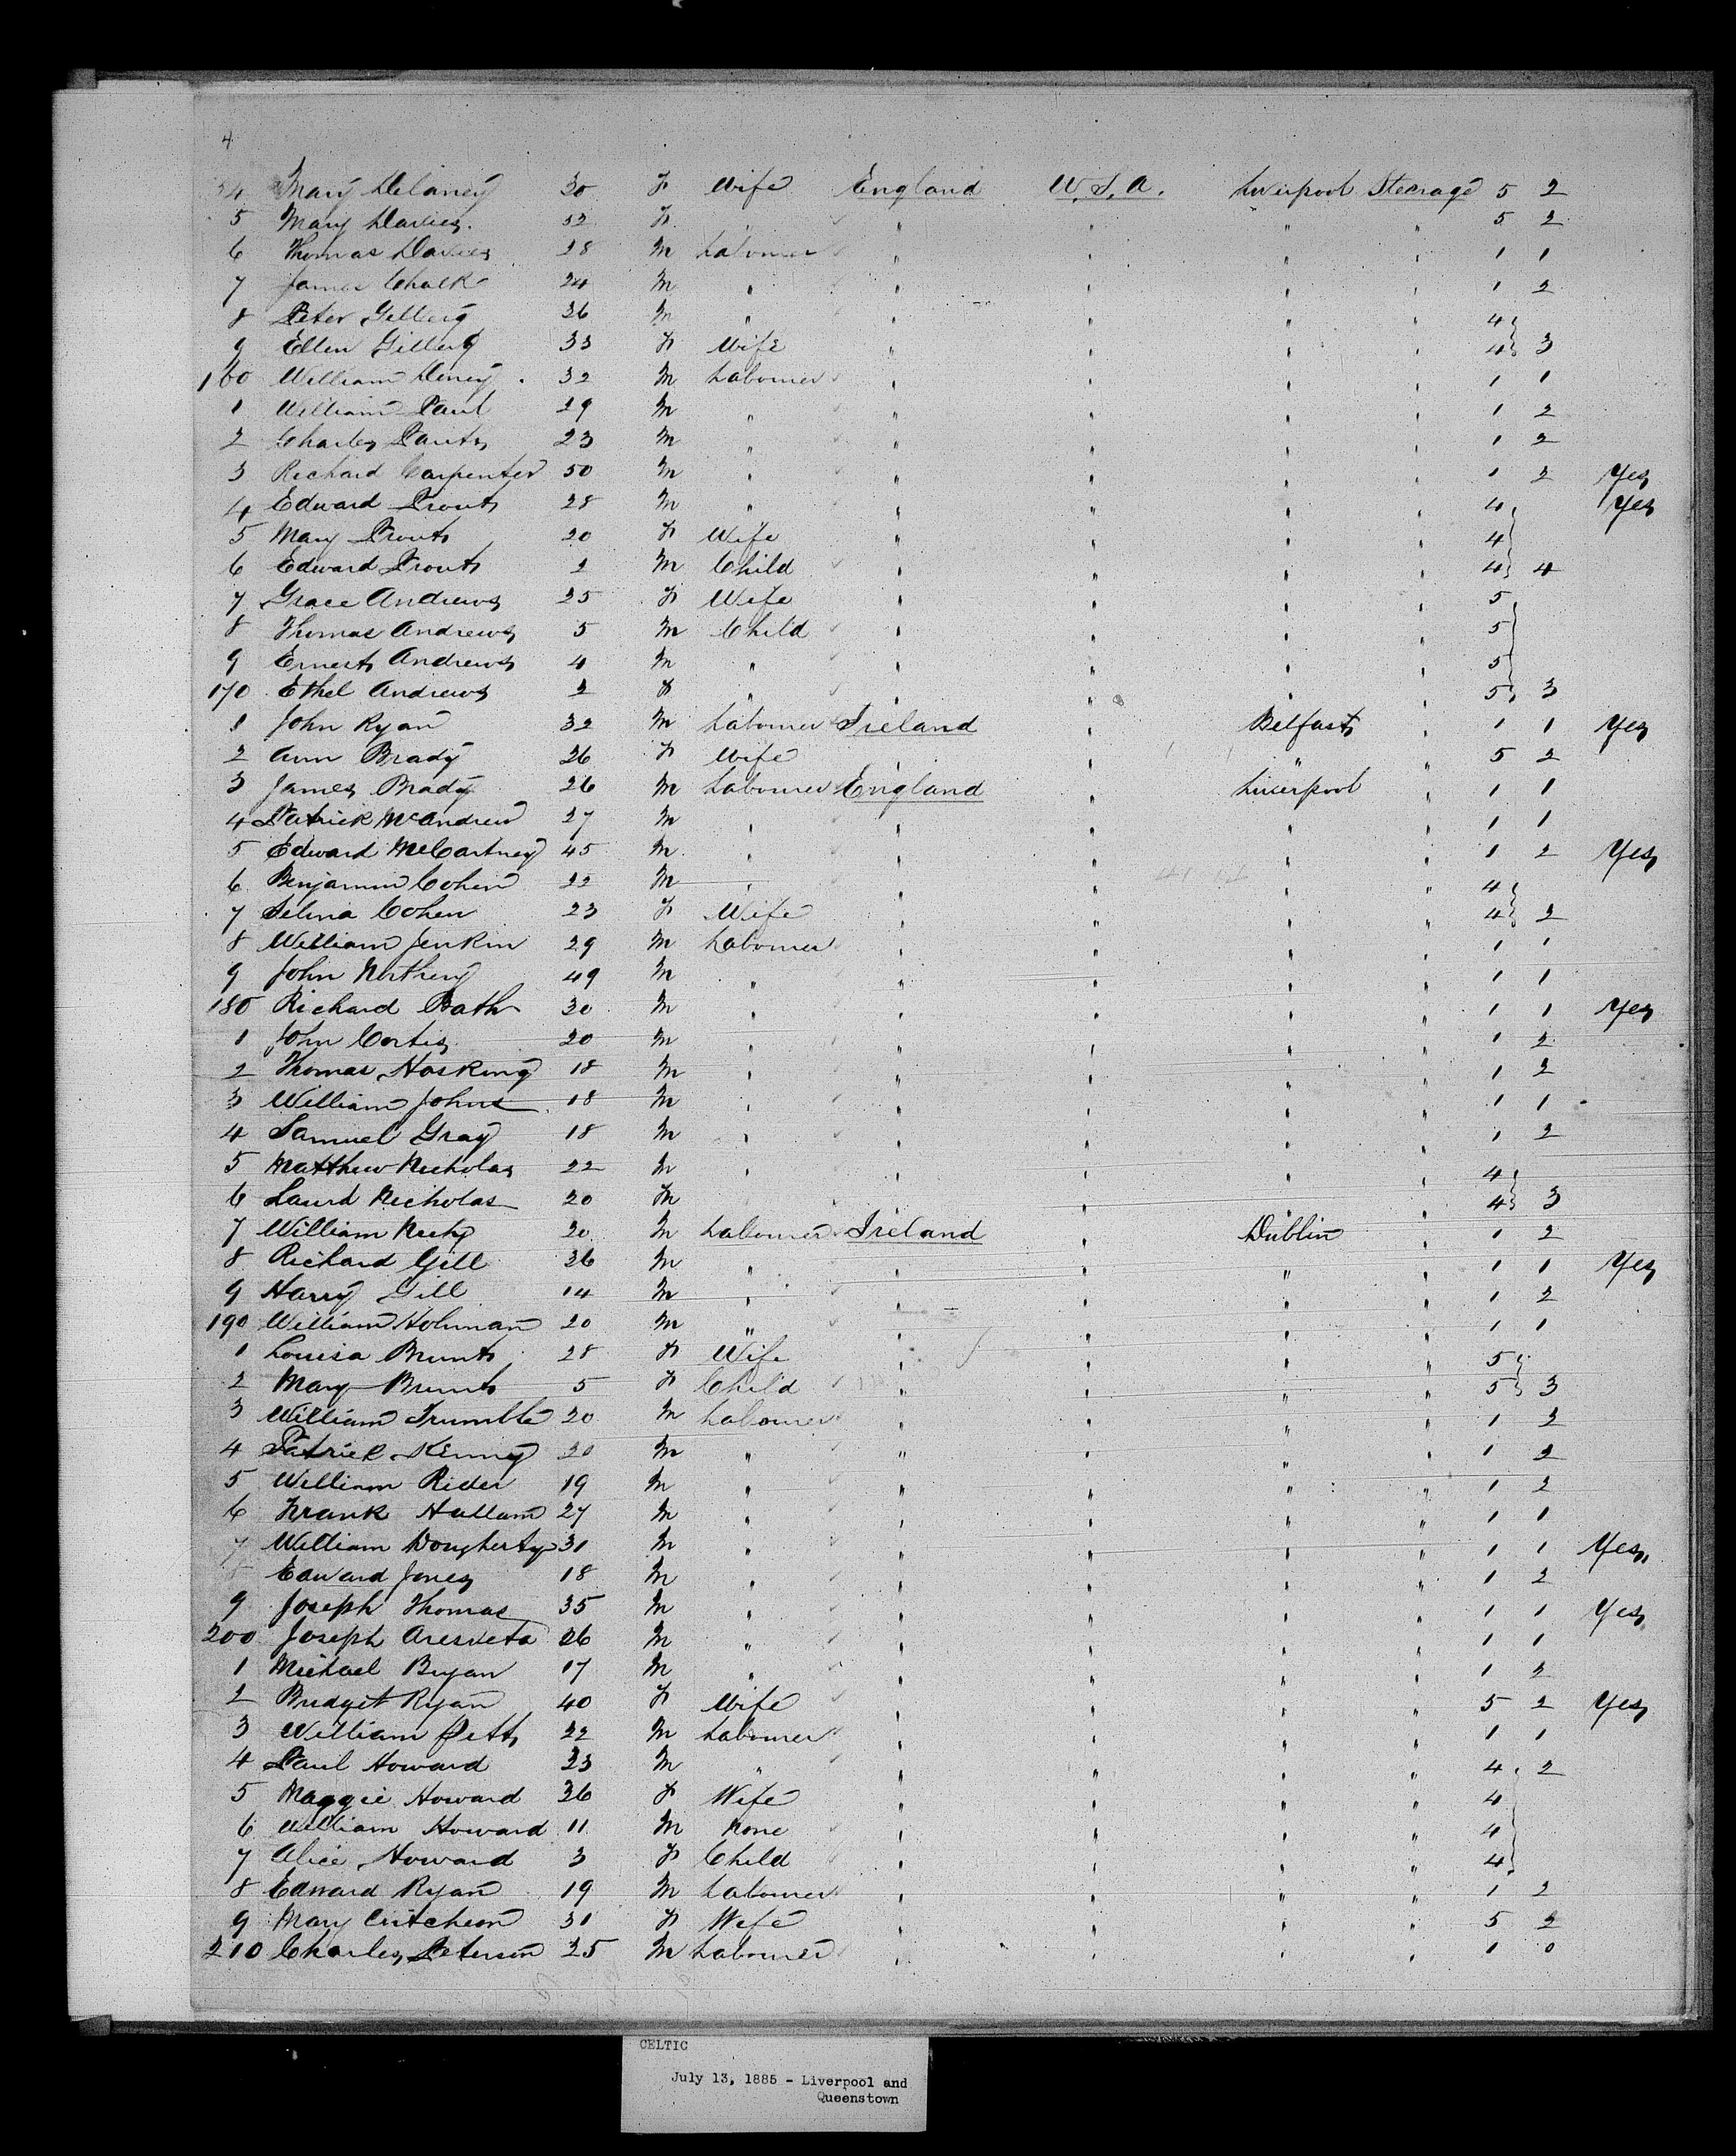 4
54 Mary Delaney 30 F Wife England U.S.A. Liverpool Steerage 5 2
5 Mary Davies 32 F " " " " " 5 2
6 Thomas Davies 28 M Labourer " " " " 1 1
7 James Chalk 24 M " " " " " 1 2
8 Peter 36 M " " " " " 4
9 Ellen 33 F Wife " " " " 4 3
160 William 32 M Labourer " " " " 1 1
1 William Paul 29 M " " " " " 1 2
2 Charles 23 M " " " " " 1 2
3 Richard Carpenter 50 M " " " " " 1 2 Yes
4 Edward Prout 28 M " " " " " 4 Yes
5 Mary Prout 20 F Wife " " " " 4
6 Edward Prout 2 M Child " " " " 4 4
7 Grace Andrews 25 F Wife " " " " 5
8 Thomas Andrews 5 M Child " " " " 5
9 Ernest Andrews 4 M " " " " " 5
170 Ethel Andrews 2 F " " " " " 5 3
1 John Ryan 32 M Labourer Ireland " Belfast " 1 1 Yes
2 Ann Brady 26 F Wife " " " " 5 2
3 James Brady 26 M Labourer England " Liverpool " 1 1
4 Patrick McAndrew 27 M " " " " " 1 1
5 Edward McCartney 45 M " " " " " 1 2 Yes
6 Benjamin Cohen 22 M " " " " " 4
7 Selina Cohen 23 F Wife " " " " 4 2
8 William Jenkin 29 M Labourer " " " " 1 1
9 John Northey 49 M " " " " " 1 1
180 Richard Bath 30 M " " " " " 1 1 Yes
1 John Cortis 20 M " " " " " 1 2
2 Thomas Hosking 18 M " " " " " 1 2
3 William Johns 18 M " " " " " 1 1
4 Samuel Gray 18 M " " " " " 1 2
5 Matthew Nicholas 22 M " " " " " 4
6 Nicholas 20 " " " " 4 3
7 William 20 M Labourer Ireland " Dublin " 1 2
8 Richard Gill 36 M " " " " " 1 1 Yes
9 Harry Gill 14 M " " " " " 1 2
190 William Holman 20 M " " " " " 1 1
1 Louisa Brunt 28 F Wife " " " " 5
2 Mary Brunt 5 F Child " " " " 5 3
3 William Trumble 20 M Labourer " " " " 1 2
4 Patrick Kenny 20 M " " " " " 1 2
5 William Rider 19 M " " " " " 1 2
6 Frank Hallam 27 M " " " " " 1 1
7 William Dougherty 31 M " " " " " 1 1 Yes
8 Edward Jones 18 M " " " " " 1 2
9 Joseph Thomas 35 M " " " " " 1 1 Yes
200 Joseph 26 M " " " " " 1 1
1 Michael Bryan 17 M " " " " " 1 2
2 Bridget Ryan 40 F Wife " " " " 5 2 Yes
3 William Pett 22 M Labourer " " " " 1 1
4 Paul Howard 33 M " " " " " 4 2
5 Maggie Howard 36 F Wife " " " " 4
6 William Howard 11 M None " " " " 4
7 Alice Howard 3 F Child " " " " 4
8 Edward Ryan 19 M Labourer " " " " 1 2
9 Mary Critcheon 31 F Wife " " " " 5 2
210 Charles Peterson 25 M Labourer " " " " 1 0
CELTIC
July 13, 1885 - Liverpool and
Queenstown